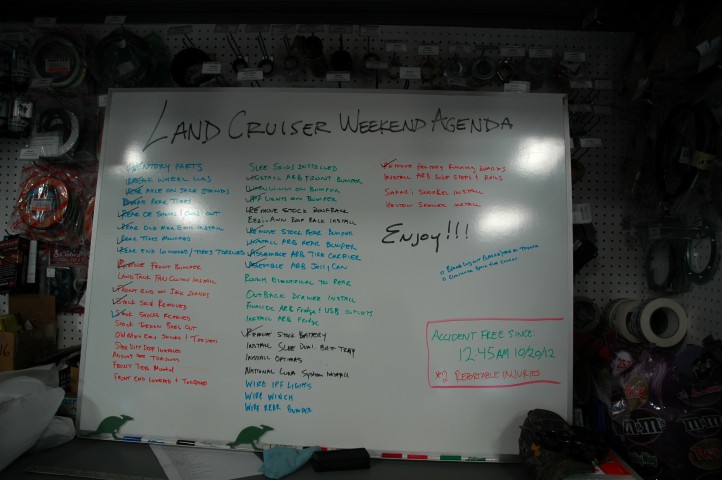 LAND CRUISER WEEKEND AGENDA
INVENTORY PARTS
BREAK WHEEL LUGS
REAR AXLE ON JACK STANDS
REAR TIRES
REAR OE SHOCKS / COILS OUT
REAR OLD MAN EMU INSTALL
REAR TIRES MOUNTED
REAR END LOWERED / TIRES TORQUED
REMOVE FRONT BUMPER
LAND TANK FAN CLUTCH INSTALL
FRONT END ON JACK STANDS
STOCK SKID REMOVED
STOCK SHOCKS REMOVED
STOCK TORSION BARS OUT
OLD MAN EMU SHOCKS & TORSION
SLEE DIFF DROP INSTALLED
TORSIONS
FRONT TIRES MOUNTED
FRONT END LOWERED & TORQUED
SLEE SKIDS INSTALLED
INSTALL ARB FRONT BUMPER
WINCH ON BUMPER
IPF LIGHTS ON BUMPER
REMOVE STOCK ROOF RACK
EEZI-AWN ROOF RACK INSTALL
REMOVE STOCK REAR BUMPER
INSTALL ARB REAR BUMPER
ASSEMBLE ARB TIRE CARRIER
ASSEMBLE ARB JELLY CAN
ROUGH ELECTRICAL TO REAR
OUTBACK DRAWER INSTALL
FINALIZE ARB FRIDGE & USB OUTLETS
INSTALL ARB FRIDGE
REMOVE STOCK BATTERY
INSTALL SLEE DUAL BATT TRAY
INSTALL OPTIMAS
NATIONAL LUNA SYSTEM INSTALL
WIRE IPF LIGHTS
WIRE WINCH
WIRE REAR BUMPER
REMOVE FACTORY RUNNING BOARDS
INSTALL ARB SIDE STEPS & RAILS
SAFARI SNORKEL INSTALL
INSTALL
ENJOY!!!
ACCIDENT FREE SINCE:
12:45AM 10/20/12
*2 REPORTABLE INJURIES
m&m's
m&m's